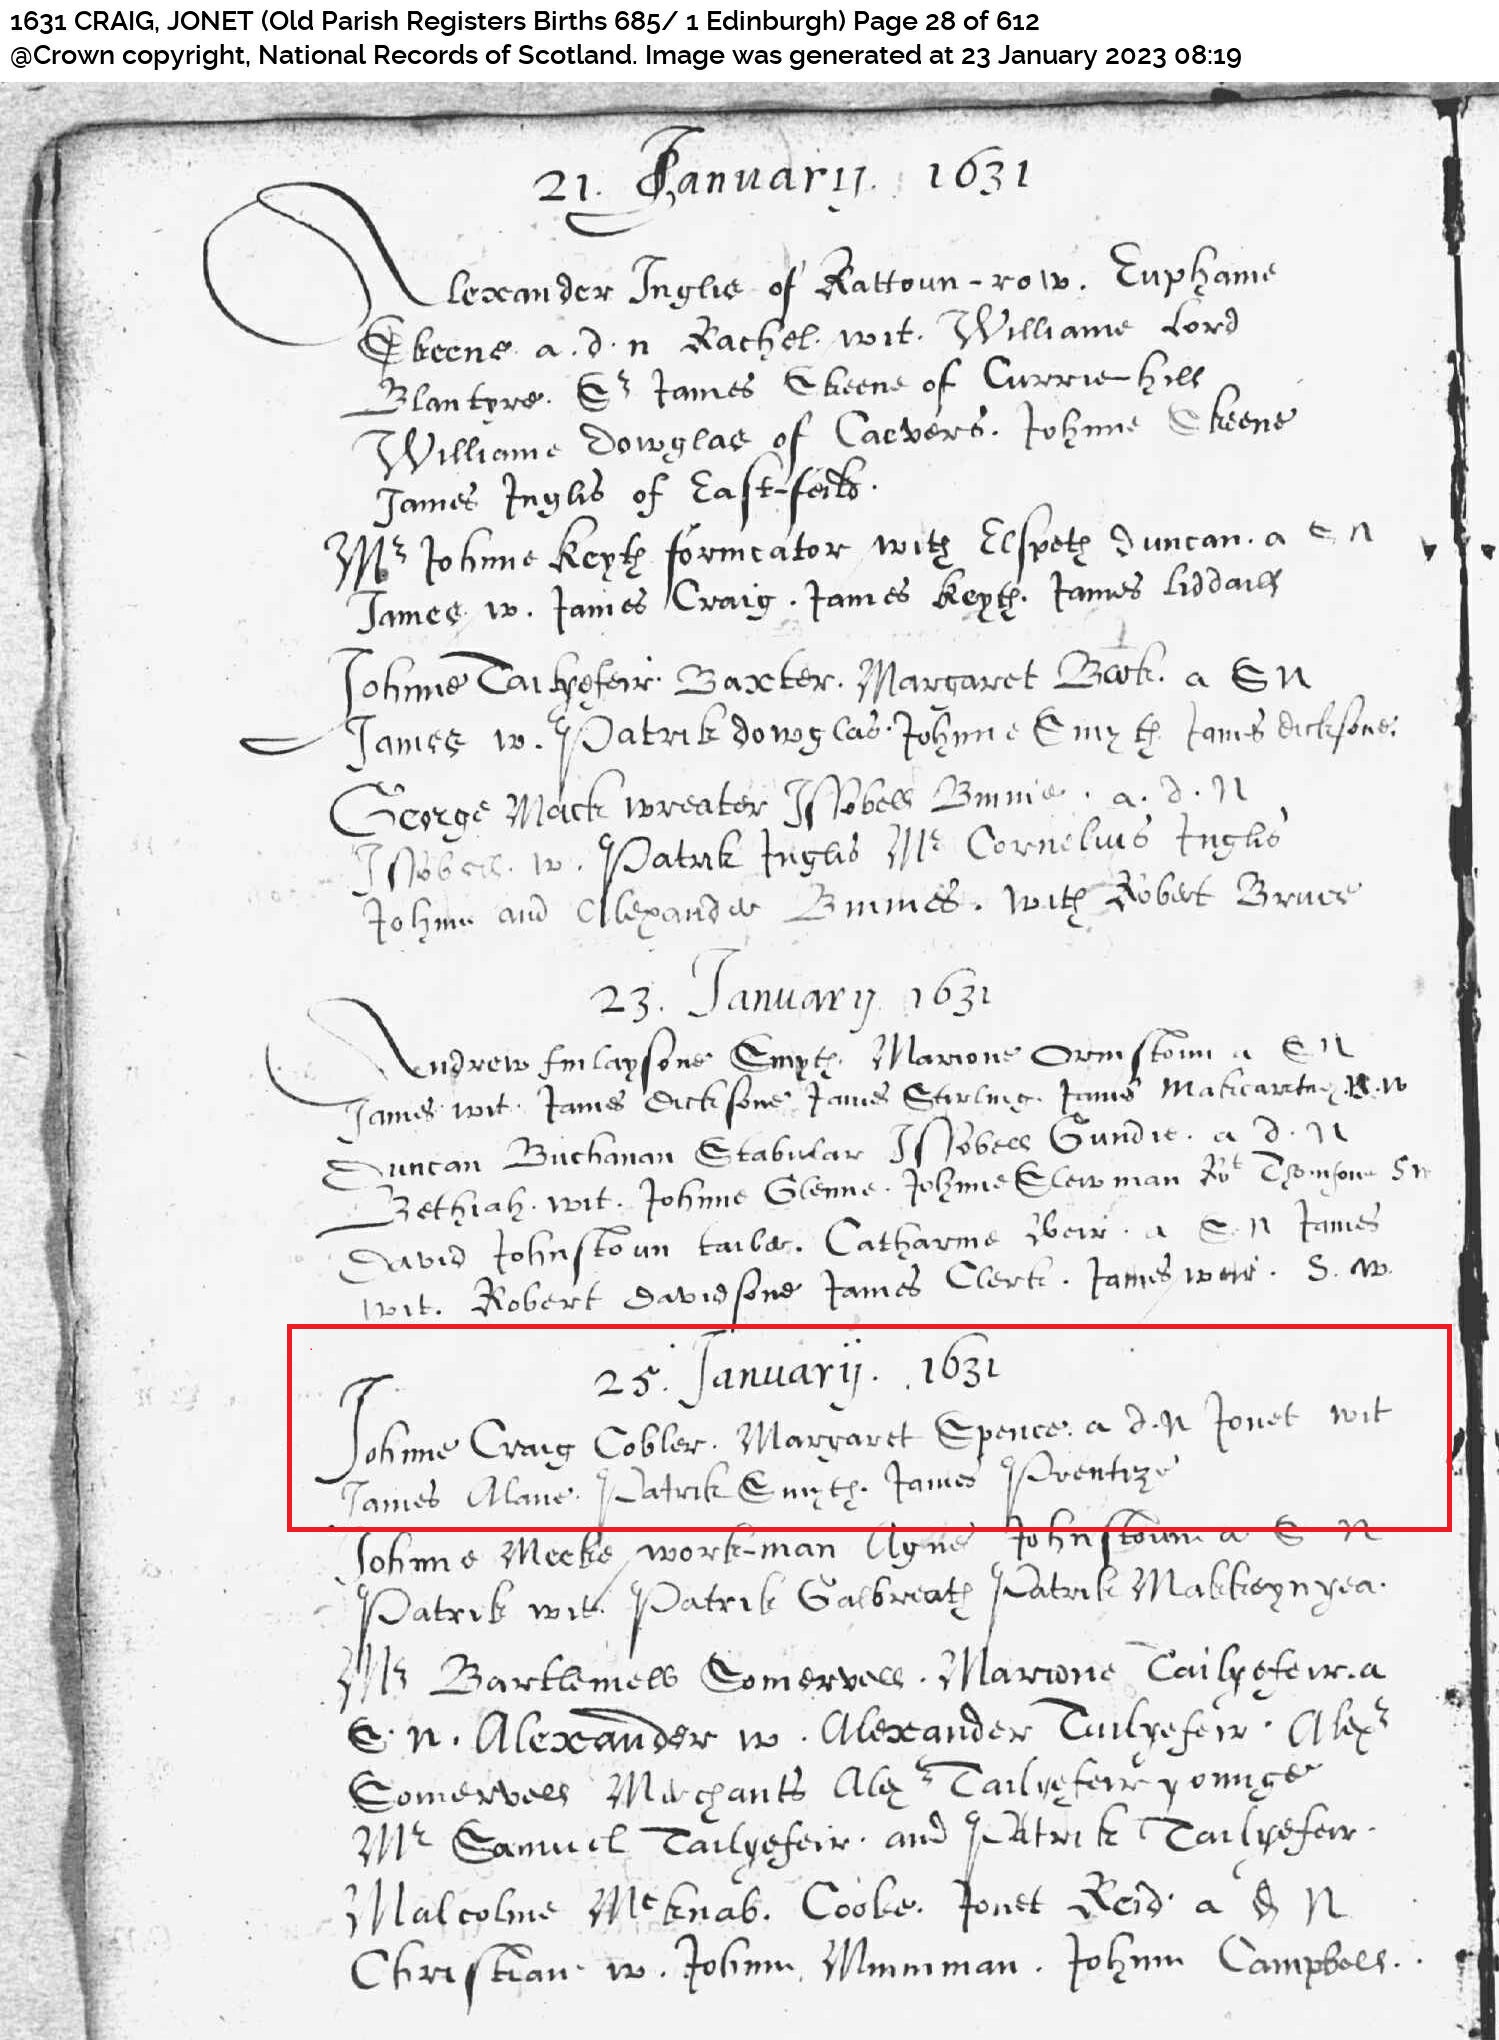 1631 CRAIG, JONET (Old Parish Registers Births 685/ 1 Edinburgh) Page 28 of 612
@Crown copyright, National Records of Scotland. Image was generated at 23 January 2023 08:19
21. Januarij. 1631
Alexander Inglis of Rattoun-row. Euphame
Skeene a. d. n Rachel. wit. Williame Lord
Blantyre. Sr James Skeene of Currie-hill
Williame Dowglas of Cavers. Johnne Skeene
James Inglis of East-feild.
Mr Johnne Keyth fornicator with Elspeth Duncan. a S N
James w. James Craig. James Keyth. James Liddaill
Johnne Tailyefeir Baxter. Margaret a S N
James w. Patrik dowglas. Johnne Smyth James dicksone.
George Mack wreater Issobell Binnie. a. d. N
Issobell. w. Patrik Inglis Mr Cornelius Inglis
Johnne and Alexander Binnies. with Robert Bruce
23. Januarij 1631
Andrew finlaysone Smyth. Marione Ormstoun a S N
James wit. James dicksone James Stirling. James Makcartnay. w
Duncan Buchanan Stabular Issobell Gundie. a d. N
Bethiah. wit. Johnne Glenne. Johnne Slewman Rot Thomsone S w
David Johnstoun tailer. Catharine Weir. a S. N James
wit. Robert davidsone James Clerk. James weir. S. w.
25. Januarij. 1631
Johnne Craig Cobler. Margaret Spence. a d. N Jonet wit
James Alane. Patrik Smyth. James Prentize
Johnne Meeke work-man Agnes Johnstoun a S N
Patrik wit. Patrik Galbreath Patrik Makkeynyea.
Mr Bartlemell Somervell. Marione Tailyefeir. a
S. N. Alexander w. Alexander Tailyefeir. Alexr
Somervell Merchants Alexr Tailyefeir younger
Mr Samuel Tailyefeir. and Patrik Tailyefeir.
Malcolme McKnab. Cooke. Jonet Reid. a d N
Christian w. Johnn Minniman. Johnn Campbell.